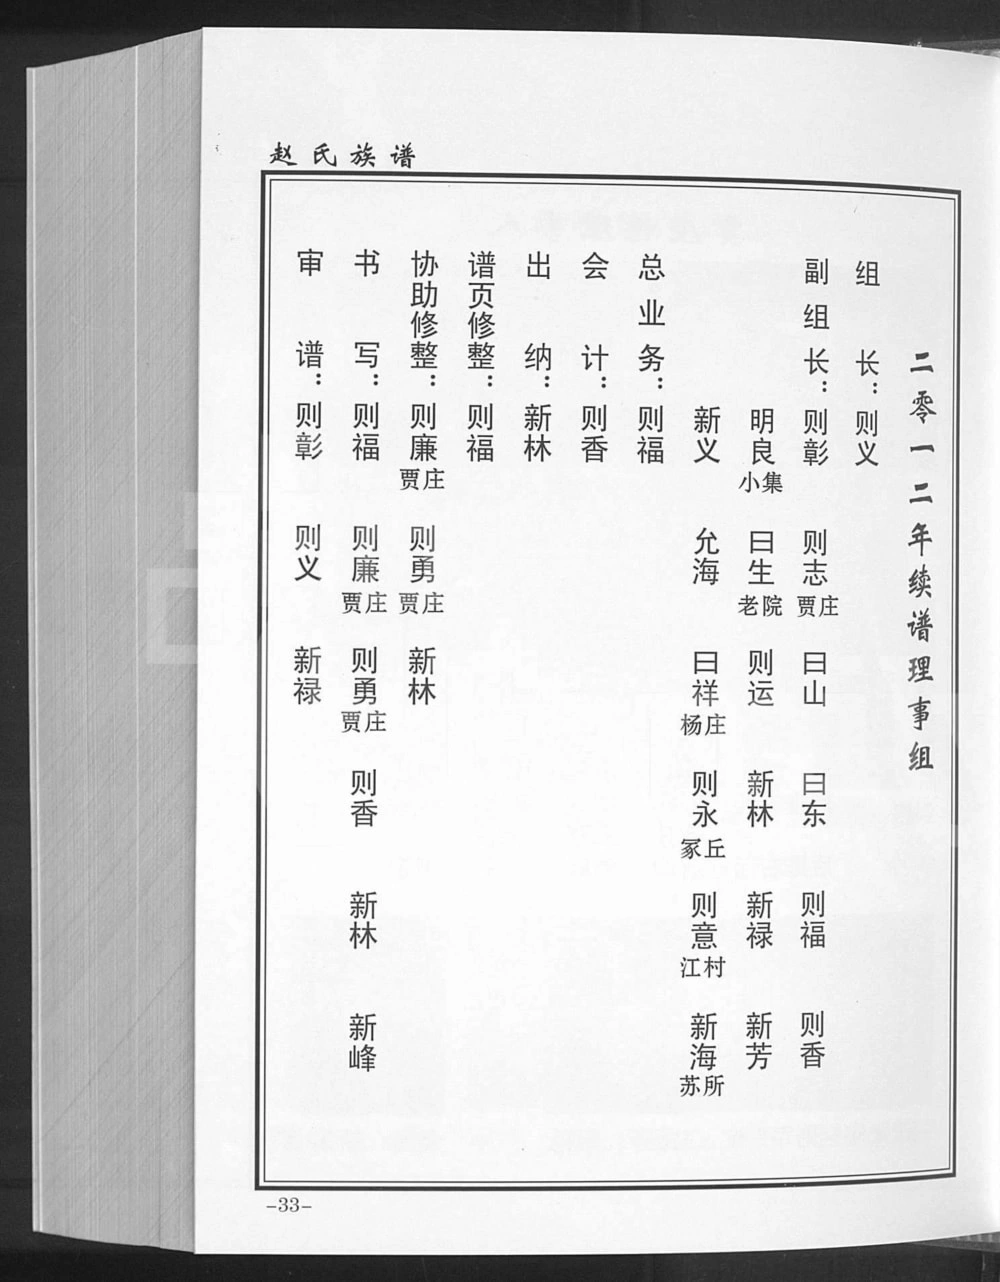 赵氏族谱
二零一二年续谱理事组
组长：则义
副组长：则彰 则志贾庄 曰山 曰东 则福 则香
明良小集 曰生老院 则运 新林 新禄 新芳
新义 允海 曰祥杨庄 则永冢丘 则意江村 新海苏所
总业务：则福
会计：则香
出纳：新林
谱页修整：则福
协助修整：则廉贾庄 则勇贾庄 新林
书写：则福 则廉贾庄 则勇贾庄 则香 新林 新峰
审谱：则彰 则义 新禄
-33-